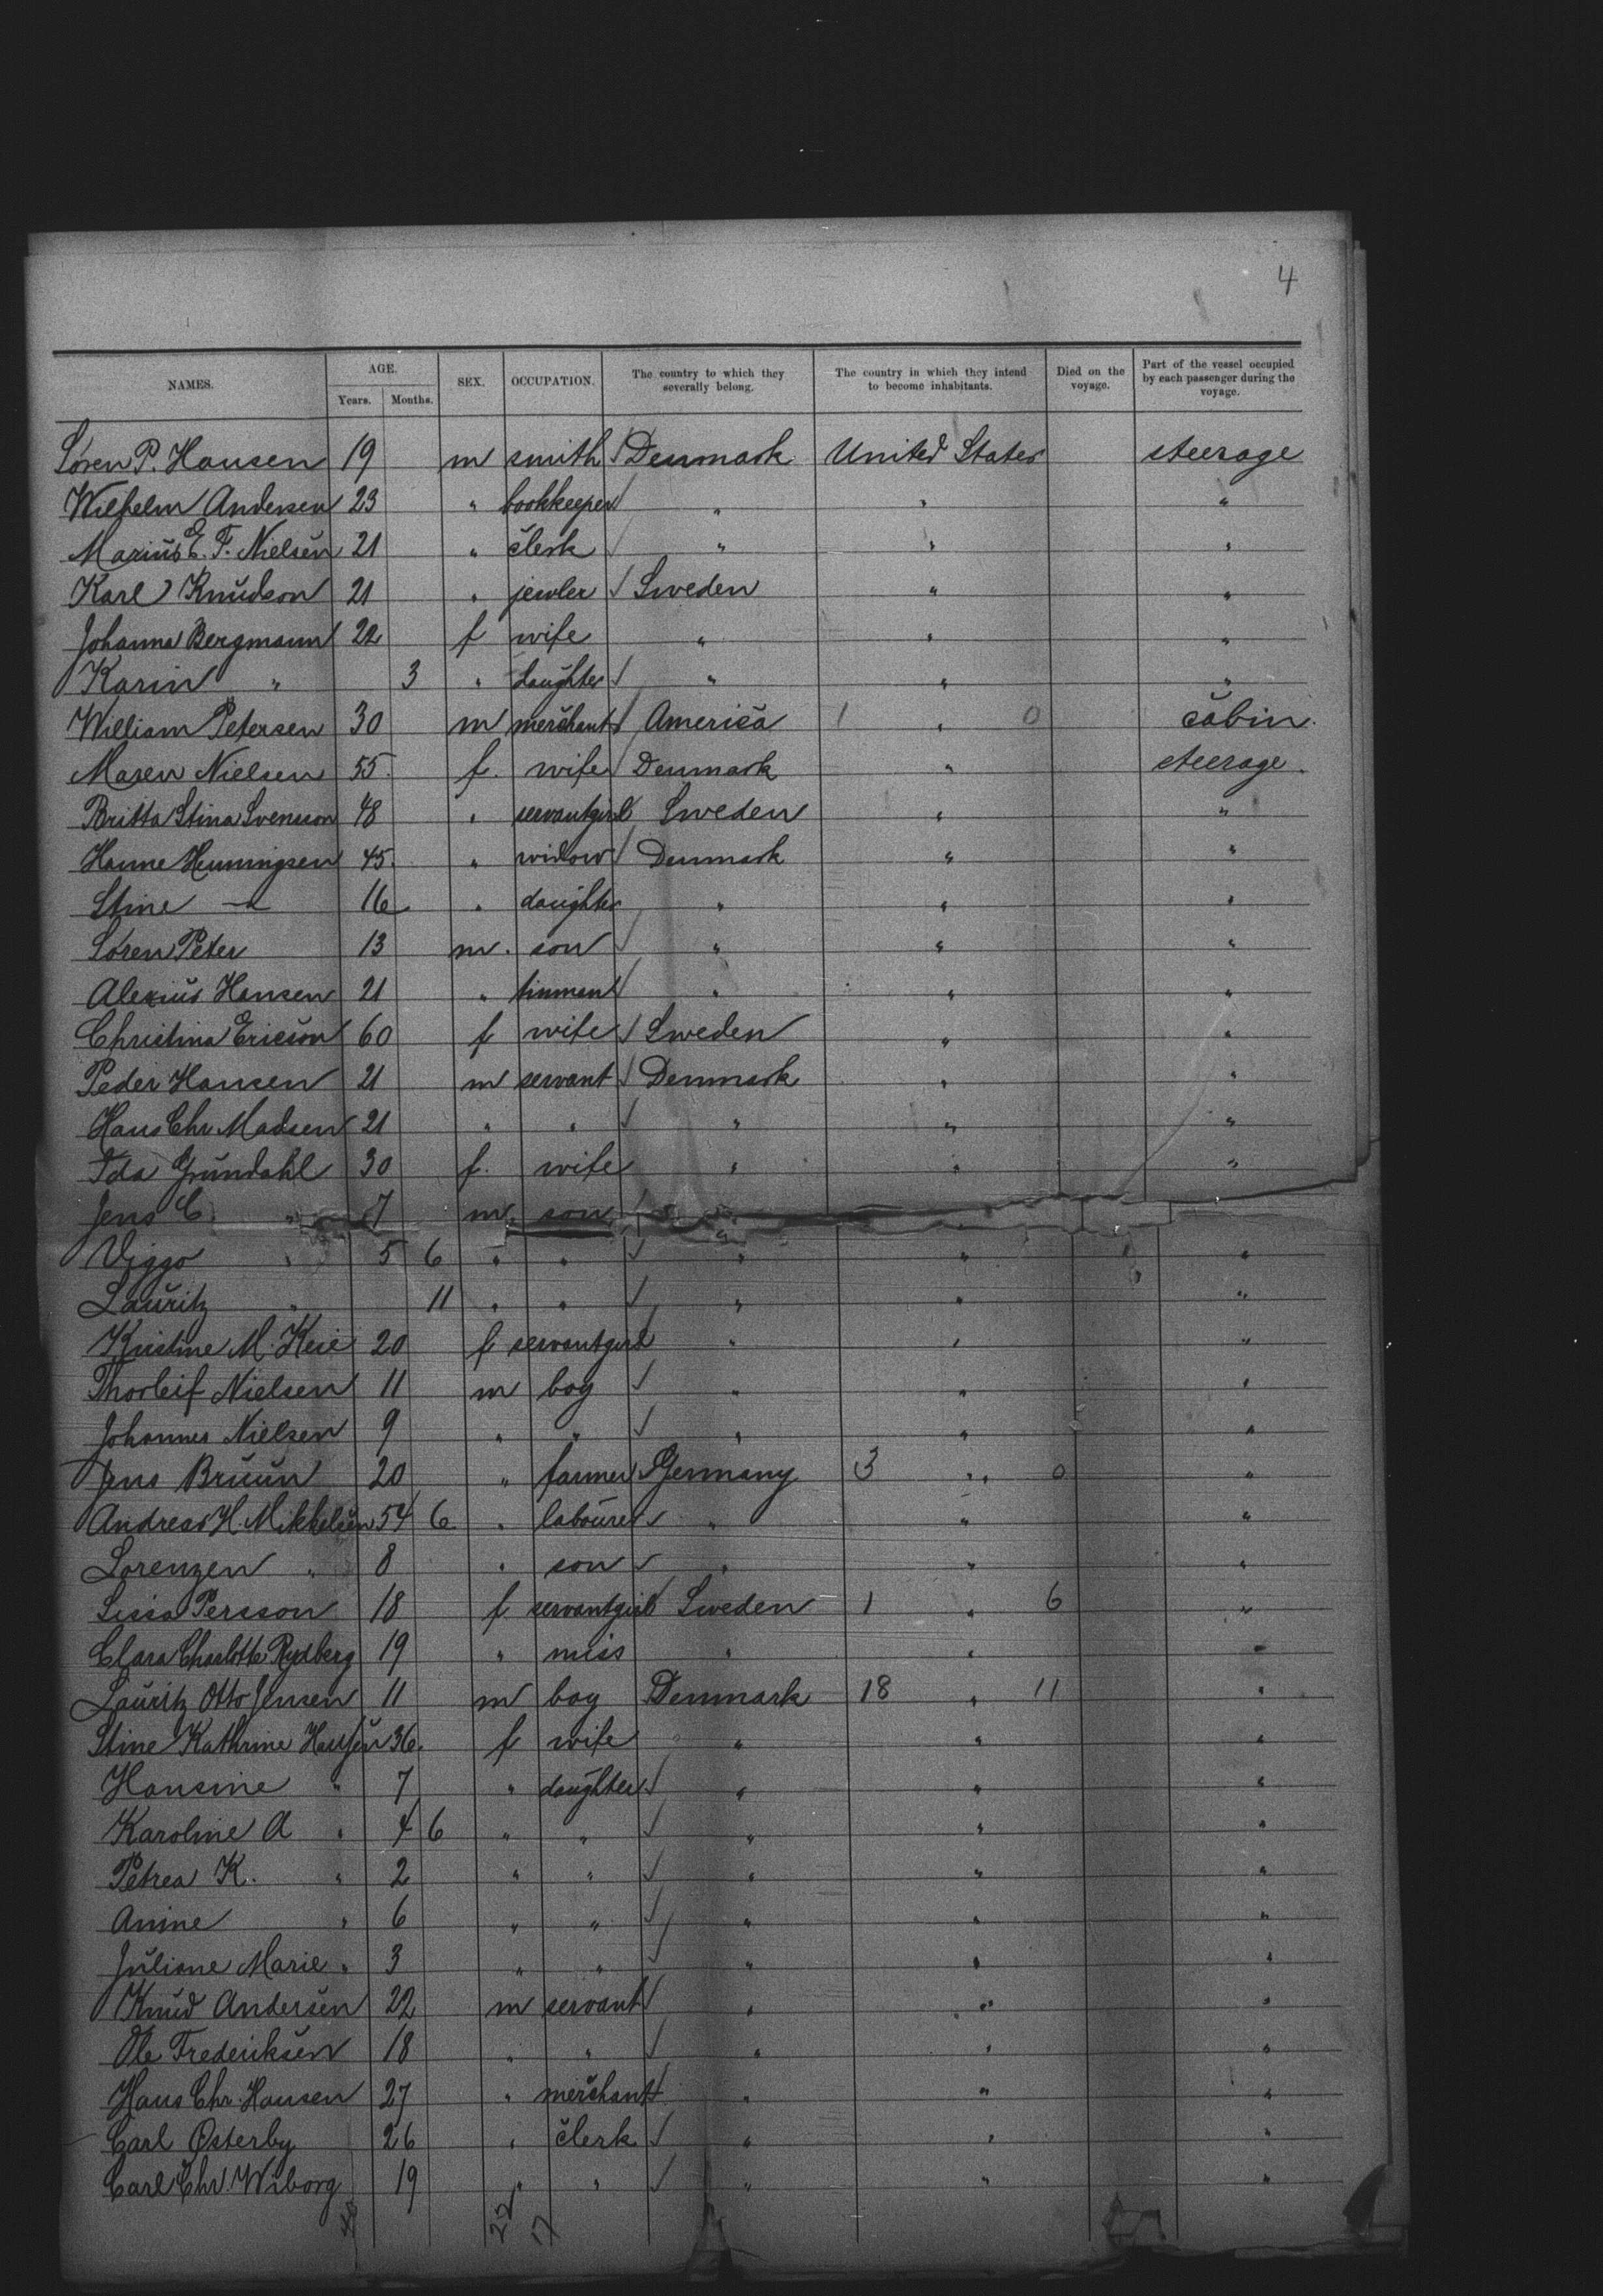 4
NAMES. AGE. Years. Months. SEX. OCCUPATION. The country to which they severally belong. The country in which they intend to become inhabitants. Died on the voyage. Part of the vessel occupied by each passenger during the voyage.
Sören P. Hansen 19 m smith / Denmark United States steerage
Wilhelm Andersen 23 " bookkeeper / " " "
Marius E. F. Nielsen 21 " clerk / " " "
Karl Knudson 21 " jewler / Sweden " "
Johanna Bergmann 22 f wife " " "
Karin " 3 " daughter / " " "
William Petersen 30 m merchant / America 1 " 0 cabin.
Maren Nielsen 55. f. wife / Denmark " steerage.
Britta Stina Svensson 48 " servantgirl Sweden " "
Hanne Henningsen 45. " widow / Denmark " "
Stine " 16 " daughter " " "
Sören Peter 13 m. son / " " "
Alexius Hansen 21 " tinman / " " "
Christina Ericson 60 f wife / Sweden " "
Peder Hansen 21 m servant / Denmark " "
Hans Chr. Madsen 21 " " / " " "
Ida Grundahl 30 f. wife " " "
Jens C. " 7 m. son / " " "
Viggo " 5 6 " " / " " "
Lauritz " 11 " " / " " "
Kristine M. Keie 20 f servantgirl " " "
Thorleif Nielsen 11 m boy / " " "
Johannes Nielsen 9 " " / " " "
Jens Bruun 20 " farmer / Germany 3 " 0 "
Andreas H. Mikkelsen 54 6 " labourer / " " "
Lorenzen " 8 " son / " " "
Lissa Persson 18 f servantgirl Sweden 1 " 6 "
Clara Charlotte Rydberg 19 " miss " " "
Lauritz Otto Jensen 11 m boy Denmark 18 " 11 "
Stine Kathrine Hansen 36. f wife " " "
Hansine " 7 " daughter / " " "
Karoline A " 4 6 " " / " " "
Petrea K. " 2 " " / " " "
Anine " 6 " " / " " "
Juliane Marie " 3 " " / " " "
Knud Andersen 22 m servant / " " "
Ole Frederiksen 18 " " / " " "
Hans Chr. Hansen 27 " merchant / " " "
Carl Østerby 26 " clerk / " " "
Carl Chr. Wiborg 19 " " / " " "
22 17